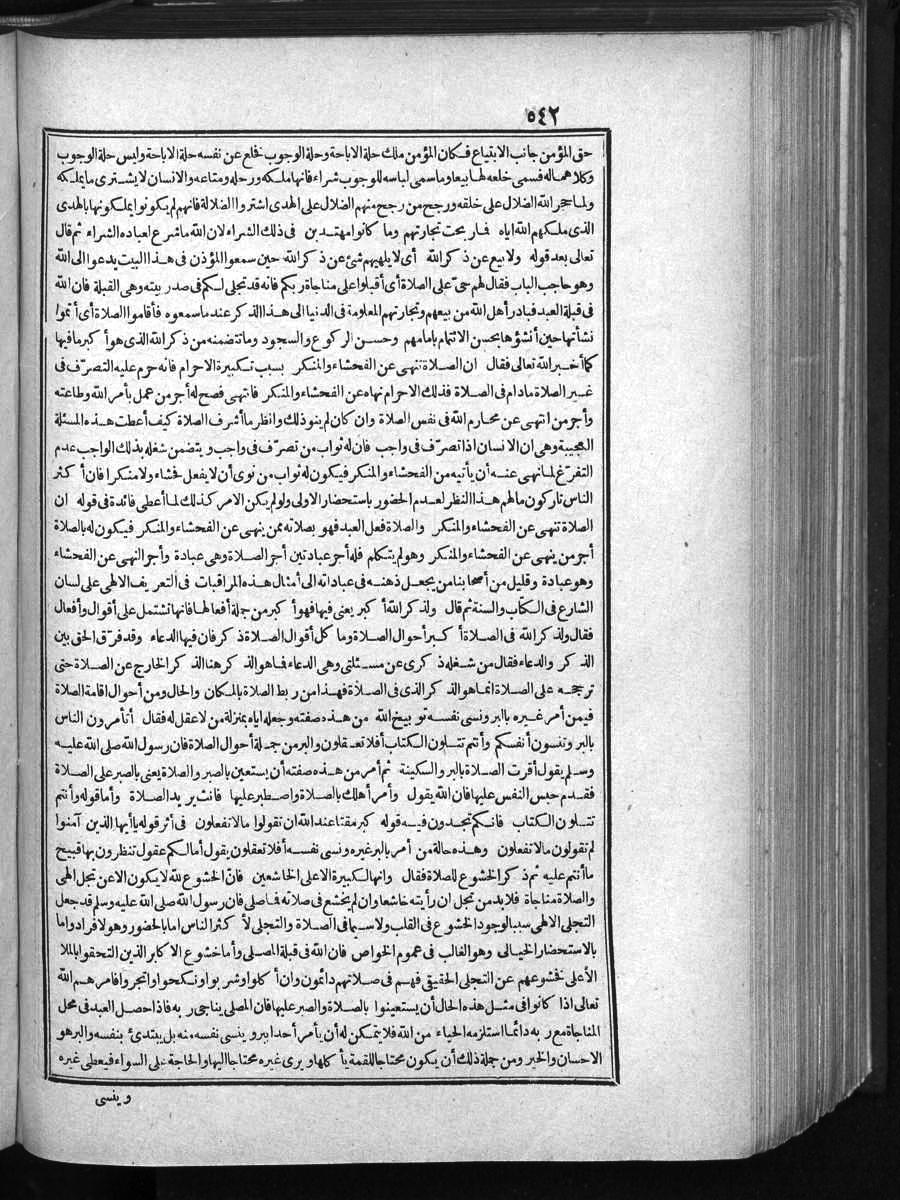 ٥٤٢
حق المؤمن جانب الابتياع فكان المؤمن ملك حلة الاباحة وحلة الوجوب فخلع عن نفسه حلة الاباحة وليس حلة الوجوب
وكلاهما له فسمى خلعه لها بيعا وما سمى لباسه للوجوب شراء فانها ملكه ورحله ومتاعه والانسان لا يشترى ما يملكه
ولما حجر الله الضلال على خلقه ورجح من رجح منهم الضلال على الهدى اشتروا الضلالة فانهم لم يكونوا يملكونها بالهدى
الذى ملكهم الله اياه فما ربحت تجارتهم وما كانوا مهتدين فى ذلك الشراء لان الله ما شرع لعباده الشراء ثم قال
تعالى بعد قوله ولا بيع عن ذكر الله أى لا يلهيهم شئ عن ذكر الله حين سمعوا المؤذن فى هذا البيت يدعوا الى الله
وهو حاجب الباب فقال لهم حىّ على الصلاة أى أقبلوا على مناجاة ربكم فانه قد تجلى لكم فى صدر بيته وهى القبلة فان الله
فى قبلة العبد فبادر أهل الله من بيعهم وتجارتهم المعلومة فى الدنيا الى هذا الذكر عند ما سمعوه فأقاموا الصلاة أى أتموا
نشأتها حين أنشؤها بحسن الائتمام بامامهم وحسن الركوع والسجود وما تتضمنه من ذكر الله الذى هو أكبر ما فيها
كما أخبر الله تعالى فقال ان الصلاة تنهى عن الفحشاء والمنكر بسبب تكبيرة الاحرام فانه حرم عليه التصرّف فى
غير الصلاة مادام فى الصلاة فذلك الاحرام نهاه عن الفحشاء والمنكر فانتهى فصح له أجر من عمل بأمر الله وطاعته
وأجر من انتهى عن محارم الله فى نفس الصلاة وان كان لم ينو ذلك وانظر ما أشرف الصلاة كيف أعطت هذه المسئلة
العجيبة وهى ان الانسان اذا تصرّف فى واجب فان له ثواب من تصرّف فى واجب ويتضمن شغله بذلك الواجب عدم
التفرّغ لما نهى عنه أن يأتيه من الفحشاء والمنكر فيكون له ثواب من نوى أن لا يفعل فحشاء ولا منكرا فان أكثر
الناس تاركون ما لهم هذا النظر لعدم الحضور باستحضار الاولى ولو لم يكن الامر كذلك لما أعطى فائدة فى قوله ان
الصلاة تنهى عن الفحشاء والمنكر والصلاة فعل العبد فهو بصلاته ممن ينهى عن الفحشاء والمنكر فيكون له بالصلاة
أجر من ينهى عن الفحشاء والمنكر وهو لم يتكلم فله أجر عبادتين أجر الصلاة وهى عبادة وأجر النهى عن الفحشاء
وهو عبادة وقليل من أصحابنا من يجعل ذهنه فى عباداته الى أمثال هذه المراقبات فى التعريف الالهى على لسان
الشارع فى الكتاب والسنة ثم قال ولذكر الله أكبر يعنى فيها فهو أكبر من جملة أفعالها فانها تشتمل على أقوال وأفعال
فقال ولذكر الله فى الصلاة أكبر أحوال الصلاة وما كل أقوال الصلاة ذكر فان فيها الدعاء وقد فرّق الحق بين
الذكر والدعاء فقال من شغله ذكرى عن مسئلتى وهى الدعاء فما هو الذكر هنا الذكر الخارج عن الصلاة حتى
ترجحه على الصلاة انما هو الذكر الذى فى الصلاة فهذا من ربط الصلاة بالمكان والحال ومن أحوال اقامة الصلاة
فيمن أمر غيره بالبر ونسى نفسه توبيخ الله من هذه صفته وجعله اياه بمنزلة من لا عقل له فقال أتأمرون الناس
بالبر وتنسون أنفسكم وأنتم تتلون الكتاب أفلا تعقلون والبر من جملة أحوال الصلاة فان رسول الله صلى الله عليه
وسلم يقول أقرت الصلاة بالبر والسكينة ثم أمر من هذه صفته أن يستعين بالصبر والصلاة يعنى بالصبر على الصلاة
فقدم حبس النفس عليها فان الله يقول وأمر أهلك بالصلاة واصطبر عليها فانث يريد الصلاة وأما قوله وأنتم
تتلون الكتاب فانكم تجدون فيه قوله كبر مقتا عند الله ان تقولوا ما لا تفعلون فى أثر قوله يا أيها الذين آمنوا
لم تقولون ما لا تفعلون وهذه حالة من أمر بالبر غيره ونسى نفسه أفلا تعقلون يقول أما لكم عقول تنظرون بها قبيح
ما أنتم عليه ثم ذكر الخشوع للصلاة فقال وانها لكبيرة الا على الخاشعين فانّ الخشوع لله لا يكون الا عن تجل الهى
والصلاة مناجاة فلا بد من تجل ان رأيته خاشعا وان لم يخشع فى صلاته فما صلى فان رسول الله صلى الله عليه وسلم قد جعل
التجلى الالهى سببا لوجود الخشوع فى القلب ولا سيما فى الصلاة والتجلى لأكثر الناس اما بالحضور وهو لا فراد واما
بالاستحضار الخيالى وهو الغالب فى عموم الخواص فان الله فى قبلة المصلى وأما خشوع الاكابر الذين التحقوا بالملا
الأعلى فخشوعهم عن التجلى الحقيقى فهم فى صلاتهم دائمون وان أكلوا وشربوا ونكحوا واتجروا فامرهم الله
تعالى اذا كانوا فى مثل هذه الحال أن يستعينوا بالصلاة والصبر عليها فان المصلى يناجى ربه فاذا حصل العبد فى محل
المناجاة مع ربه دائما استلزمه الحياء من الله فلا يتمكن له أن يأمر أحدا ببر وينسى نفسه منه بل يبتدئ بنفسه والبر هو
الاحسان والخير ومن جملة ذلك أن يكون محتاجا للقمة يأكلها ويرى غيره محتاجا اليها والحاجة على السواء فيعطى غيره
وينسى